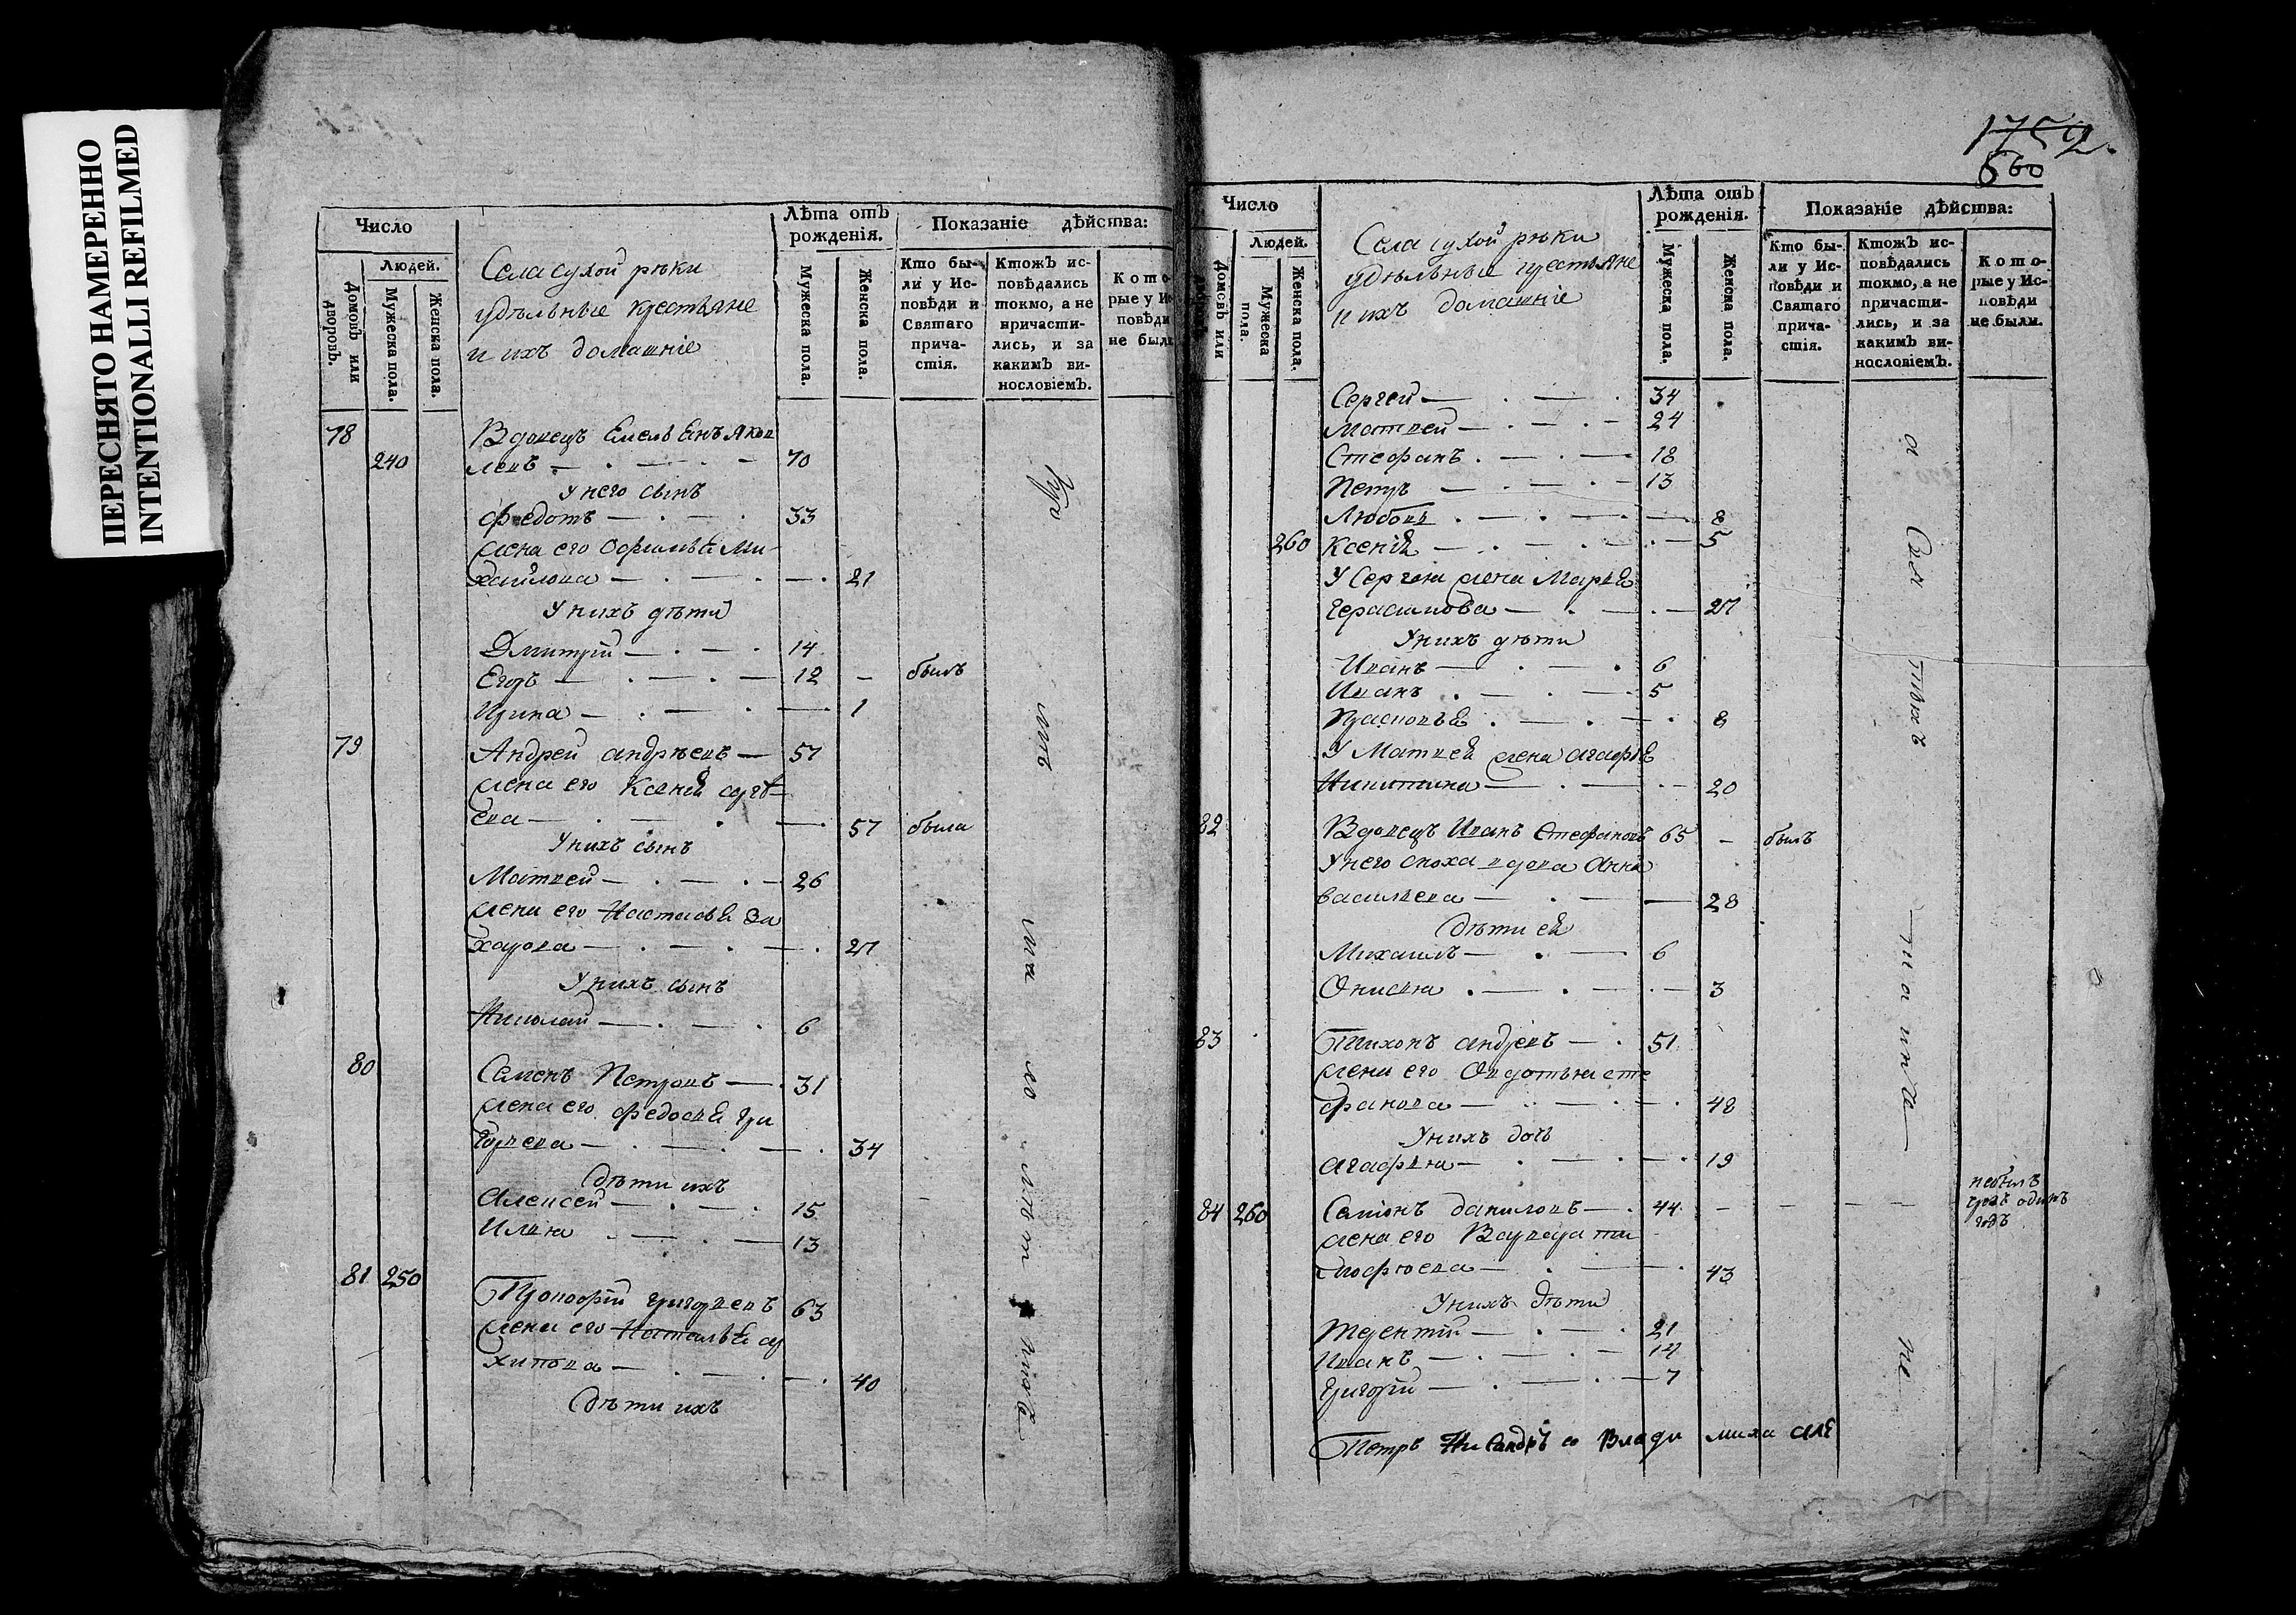 ПЕРЕСНЯТО НАМЕРЕННО
INTENTIONALLI REFILMED
Число
Людей.
Домовъ или дворовъ.
Мужеска пола.
Женска пола.
Села сухой рѣки
удѣльные крестьяне
и ихъ домашніе
Лѣта отъ рожденія.
Мужеска пола.
Женска пола.
Показаніе дѣйства:
Кто бы-
ли у Ис-
повѣди и
Святаго
прича-
стія.
Ктожъ ис-
повѣдались
токмо, а не
причасти-
лись, и за
какимъ ви-
нословіемъ.
Кото-
рые у Ис
повѣди
не были
78 Вдовецъ Емельянъ Яков
240 левъ 70
У него сынъ
Федотъ 33
жена его Офимья Ми-
хайлова 21
У нихъ дѣти
Дмитрій 14
Егоръ 12 былъ
Ирина 1
79 Андрей андрѣевъ 57
жена его Ксенія
ева 57 была
У нихъ сынъ
Матвей 26
жена его Настасья За
харова 27
У нихъ сынъ
Николай 6
80 Семенъ Петровъ 31
жена его Федосья Гри
горьева 34
дѣти ихъ
Алексей 15
Илья 13
81 250 Прокофій григорьевъ 63
жена его Наталья ар
хипова 40
дѣти ихъ
1752.
560
Число
Людей.
Домовъ или
Мужеска пола.
Женска пола.
Села сухой рѣки
удѣльные крестьяне
и ихъ домашніе
Лѣта отъ рожденія.
Мужеска пола.
Женска пола.
Показаніе дѣйства:
Кто бы-
ли у Ис-
повѣди и
Святаго
прича-
стія.
Ктожъ ис-
повѣдались
токмо, а не
причасти-
лись, и за
какимъ ви-
нословіемъ.
Кото-
рые у Ис-
повѣди
не были.
Сергей 34
Матвей 24
Стефанъ 18
Петръ 13
Любовь 8
260 Ксенія 5
У Сергея жена Марья
Герасимова 27
У нихъ дѣти
Иванъ 6
Иванъ 5
Прасковья 8
У Матвея жена агафья
Никитина 20
82 Вдовецъ Иванъ Стефановъ 65 былъ
У него сноха вдова Анна
васильева 28
дѣти ея
Михаилъ 6
Онисья 3
83 Тихонъ андреевъ 51
жена его Овдотья сте
фанова 48
У нихъ дочь
агафья 19
84 260 Симонъ даниловъ 44 небылъ
одинъ
годъ
жена его Варвара ти
мофеева 43
У нихъ дѣти
Терентій 21
Иванъ 14
Григорій 7
Петръ